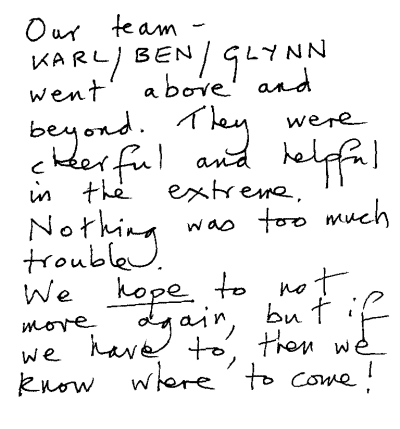 Our team -
KARL/BEN/GLYNN
went above and
beyond. They were
cheerful and helpful
in the extreme.
Nothing was too much
trouble.
We hope to not
move again, but if
we have to, then we
know where to come!